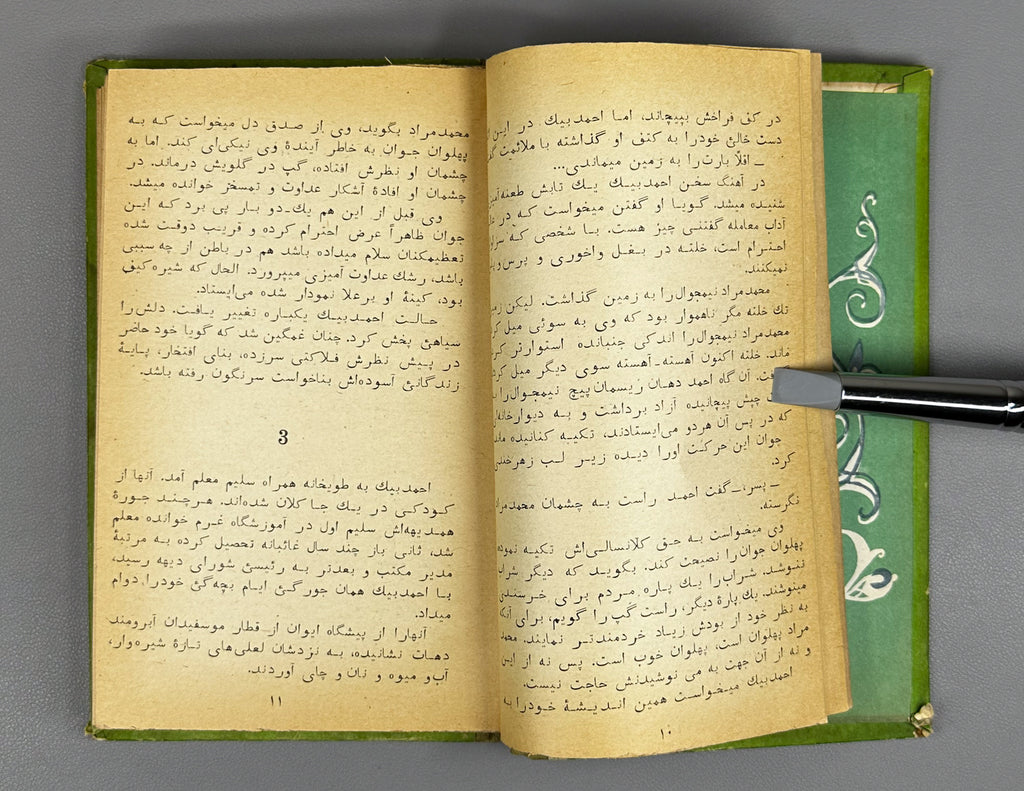 در کف فراخش بپیچاند، اما احمدبیك در این
دست خالئ خودرا به کتف او گذاشته با ملائمت
ـ اقلّا بارت‌را به زمین میماندی...
در آهنگ سخن احمدبیـك یـك تابش طعنه‌آمیـ
شنیـده میشد. گـویـا او گفتن میخواست کـه در
آداب معامله گفتنـی چیـز هست. بـا شخصی کـه
احتـرام است، خلتـه در بـغـل واخوری و پرس‌و
نمیکنند.
محمدمراد نیمجوال‌را به زمین گذاشت. لیکن
تك خلته مگر ناهموار بود که وی به سوئی میل
محمدمراد نیمجوال‌را انـدکـی جنبـانـده استوارتر
ماند. خلته اکنون آهسته‌ـ‌آهسته سوی دیگر میل
آن گاه احمد دهـان ریسمان‌پیچ نیمجـوال‌را
چپش پیچانیده آزاد برداشت و بـه دیوار
که در پس آن هردو می‌ایستادند، تکیـه کنانیده
جوان این حرکت اورا دیـده زیـر لـب زهرخند
کرد.
ـ پسر،ـ گفت احمـد راست بـه چشمان محمدمراد
نگرسته.
وی میخواست بـه حـق کلانسالـی‌اش تکیـه نموده
پهلوان جوان‌را نصیحت کند. بگویـد کـه دیگر شراب
ننـوشد. شراب‌را یـك پـاره مـردم برای خـرسنـدی
مینوشند. یك پارهٔ دیگر، راست گپ‌را گویم، برای آنکه
به نظر خود از بودش زیـاد خردمندتـر نمایند. محمد
مراد پهلوان است، پهلوان خوب است. پس نه از این
و نه از آن جهت به می نوشیدنش حاجت نیست.
احمدبیك میـخـواست همین انـدیـشـهٔ خـودرا به
۱۰
محمدمراد بگوید، وی از صـدق دل میخواست کـه بـه
پهلوان جـوان به خاطر آیندهٔ وی نیکی‌ای کند. اما به
چشمان او نظرش افتاده، گپ در گلویش درماند. در
چشمان او افادهٔ آشکار عداوت و تمسخر خوانده میشد.
وی قبل از این هم یك‌ـ‌دو بـار پی برد کـه ایـن
جوان ظاهراً عرض احترام کرده و قریب دوقت شده
تعظیمکنان سلام میداده باشد هم در باطن از چه سببی
باشد، رشك عداوت آمیزی میپرورد. الحال که شیره‌کیف
بود، کینهٔ او برعلا نمودار شده می‌ایستاد.
حـالـت احمدبیـك یکبـاره تغییر یـافـت. دلش‌را
سیاهئ پخش کرد. چنان غمگین شد که گویا خود حاضر
در پـیـش نظرش فـلاکتـی سرزده، بنای افتخار، پـایـهٔ
زنـدگانـئ آسوده‌اش بناخواست سرنگون رفته باشد.
3
احمدبیك به طویخانه همراه سلیم معلم آمد. آنها از
کـودکـی در یـك جـا کلان شده‌اند. هـرچـنـد جـورهٔ
همـدیهه‌اش سلیم اول در آموزشگاه غـرم خوانده معلم
شد، ثانی باز چند سال غائبانه تحصیل کرده بـه مرتبهٔ
مدیر مکتب و بعدتر به رئیسئ شورای دیهه رسید،
بـا احمدبیك همان جورگـئ ایـام بچه‌گئ خودرا دوام
میداد.
آنهارا از پیشگاه ایوان از قطار موسفیدان آبرومند
دهـات نشانیده، بـه نزدشان لعلی‌های تـازهٔ شیره‌وار،
آب‌و میوه و نان‌و چای آوردند.
۱۱